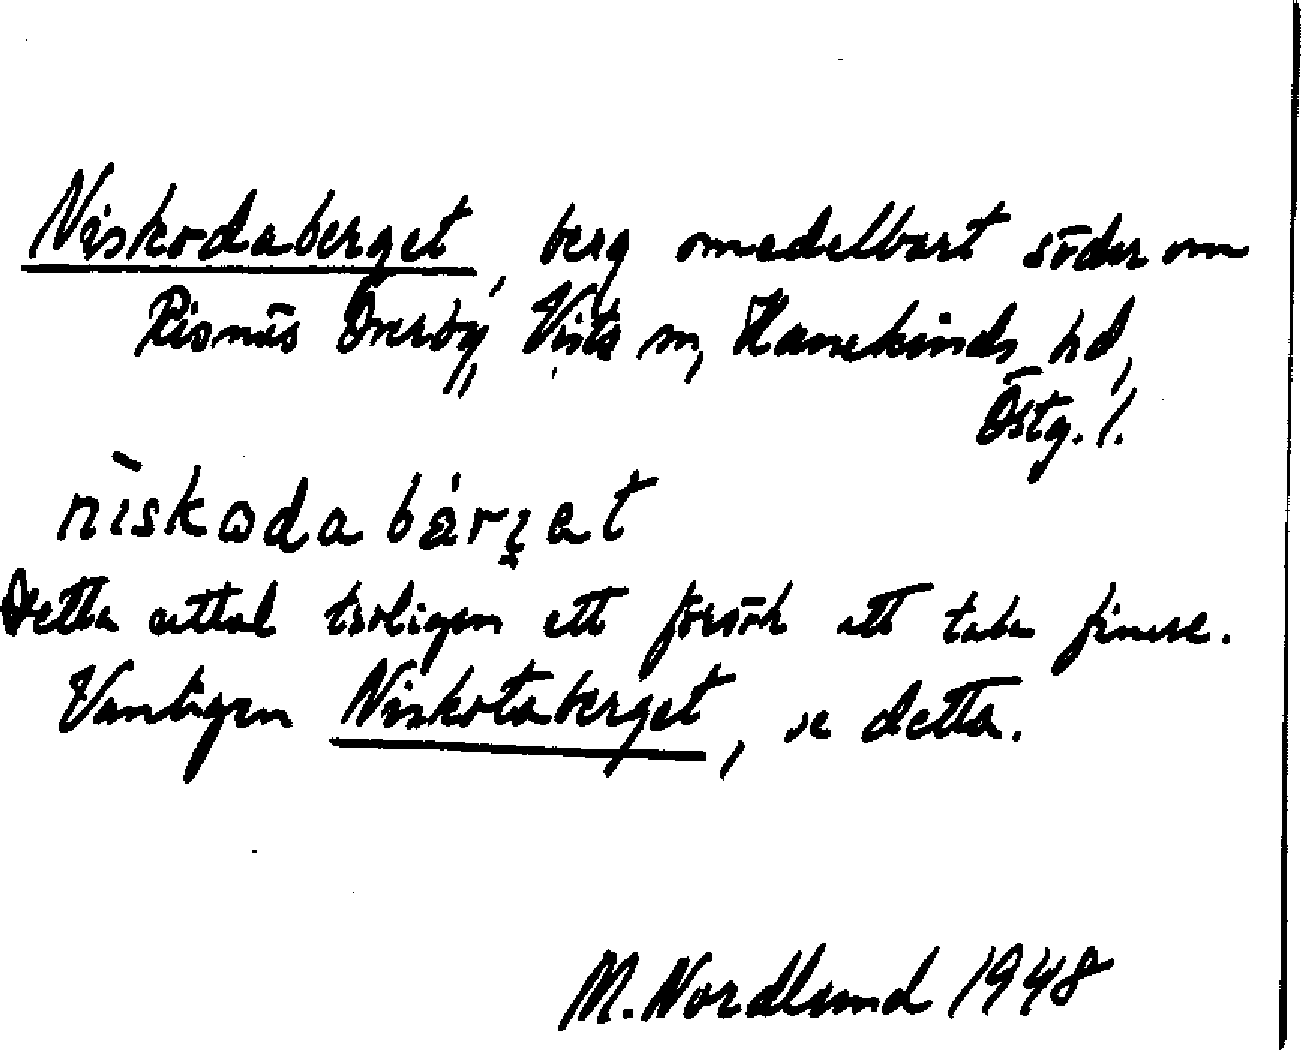 Niskodaberget, berg omedelbart söder om
Risnäs Överby, Vists sn, Hanekinds hd,
Östg. l.
nìskodabárget
Detta uttal troligen ett försök att tala finare.
Vanligen Niskotaberget, se detta.
M. Nordlund 1948